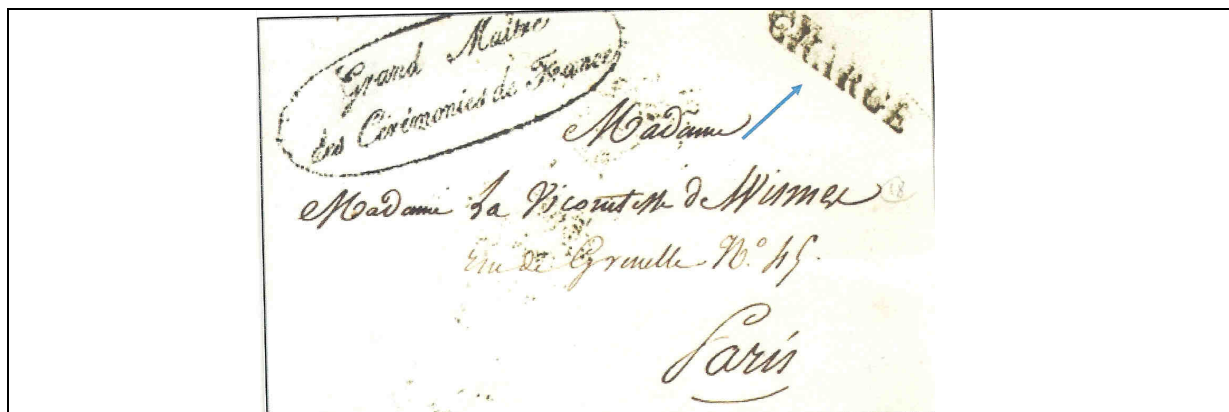 Grand Maître
des Cérémonies de France
CHARGÉ
Madame
Madame La Vicomtesse de
rue de Grenelle N.° 45.
Paris